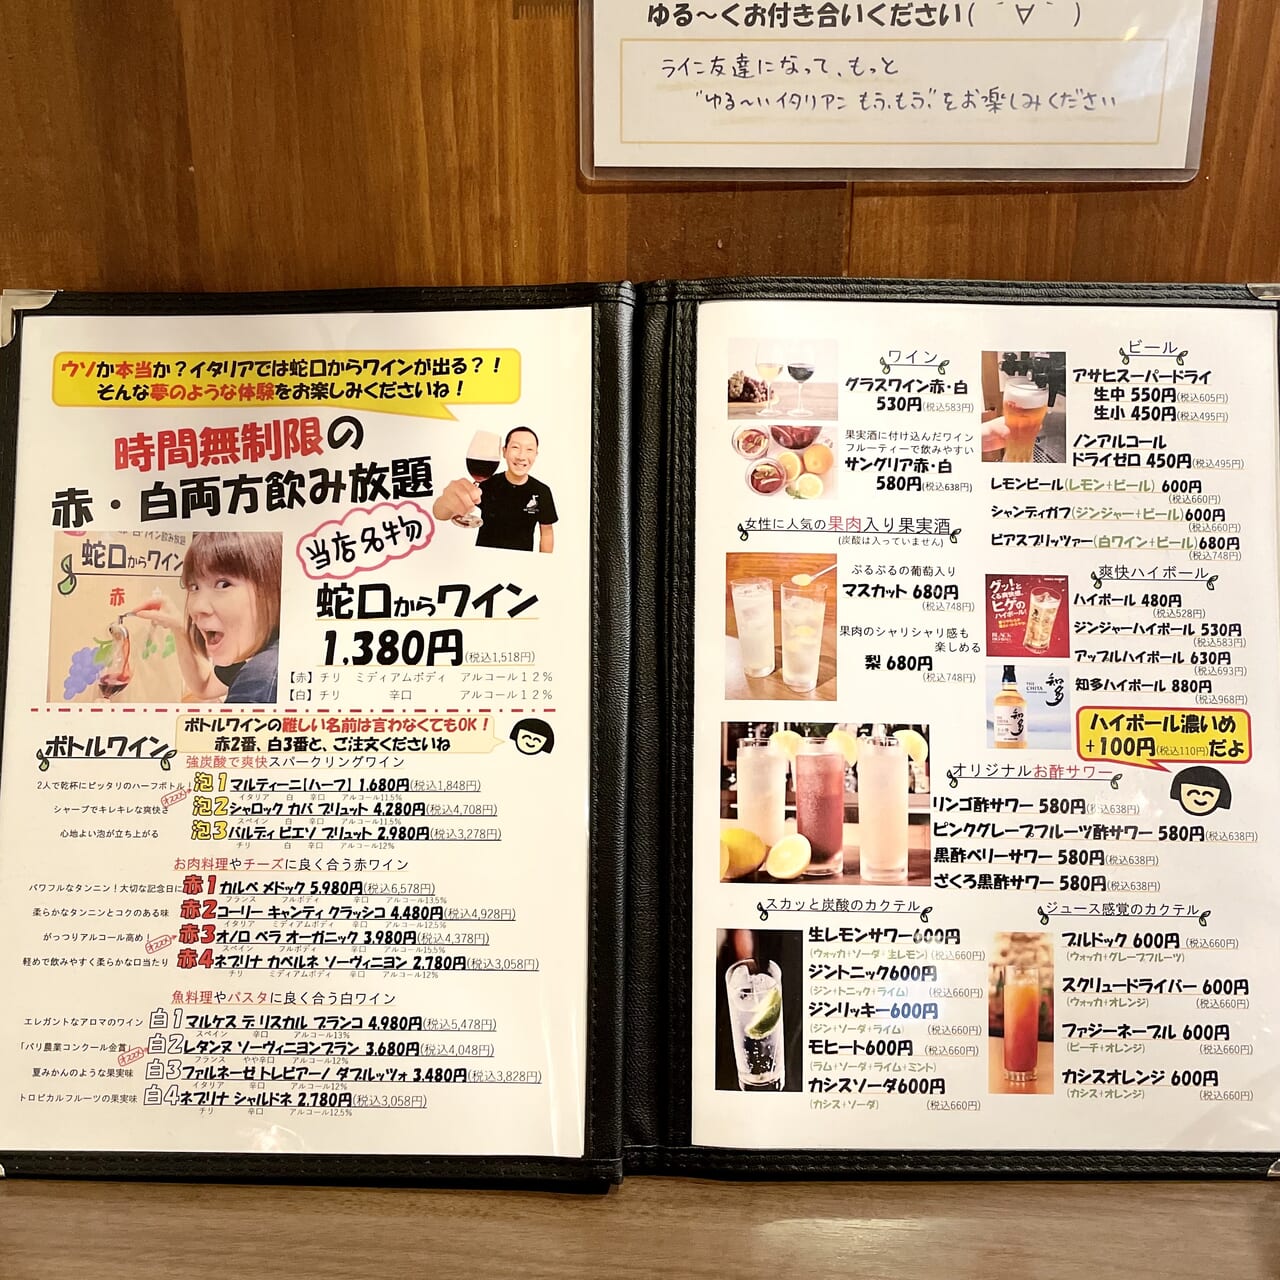 ゆる〜くお付き合いください( ´∀｀ )
ライン友達になって、もっと
"ゆる〜いイタリアン もう.もう."をお楽しみください
ウソか本当か？イタリアでは蛇口からワインが出る？！
そんな夢のような体験をお楽しみくださいね！
時間無制限の
赤・白両方飲み放題
当店名物
蛇口からワイン
赤
蛇口からワイン
1,380円(税込1,518円)
【赤】チリ ミディアムボディ アルコール12%
【白】チリ 辛口 アルコール12%
ボトルワイン
ボトルワインの難しい名前は言わなくてもOK！
赤2番、白3番と、ご注文くださいね
強炭酸で爽快スパークリングワイン
2人で乾杯にピッタリのハーフボトル 泡1 マルティーニ[ハーフ] 1,680円(税込1,848円)
イタリア 白 辛口 アルコール11.5%
シャープでキレキレな爽快さ オススメ 泡2 シャロック カバ ブリュット 4,280円(税込4,708円)
スペイン 白 辛口 アルコール11.5%
心地よい泡が立ち上がる 泡3 バルディビエソ ブリュット 2,980円(税込3,278円)
チリ 白 辛口 アルコール12%
お肉料理やチーズに良く合う赤ワイン
パワフルなタンニン！大切な記念日に 赤1 カルベ メドック 5,980円(税込6,578円)
フランス フルボディ 辛口 アルコール13.5%
柔らかなタンニンとコクのある味 赤2 コーリー キャンティ クラッシコ 4,480円(税込4,928円)
イタリア ミディアムボディ 辛口 アルコール12.5%
がっつりアルコール高め！ オススメ 赤3 オノロ ベラ オーガニック 3,980円(税込4,378円)
スペイン フルボディ 辛口 アルコール15.5%
軽めで飲みやすく柔らかな口当たり 赤4 ネブリナ カベルネ ソーヴィニヨン 2,780円(税込3,058円)
チリ ミディアムボディ 辛口 アルコール12%
魚料理やパスタに良く合う白ワイン
エレガントなアロマのワイン 白1 マルケス デ リスカル ブランコ 4,980円(税込5,478円)
スペイン 辛口 アルコール13%
「パリ農業コンクール金賞」 オススメ 白2 レタンヌ ソーヴィニヨンブラン 3,680円(税込4,048円)
フランス やや辛口 アルコール12%
夏みかんのような果実味 白3 ファルネーゼ トレビアーノ ダブルッツォ 3,480円(税込3,828円)
イタリア 辛口 アルコール12%
トロピカルフルーツの果実味 白4 ネブリナ シャルドネ 2,780円(税込3,058円)
チリ 辛口 アルコール12.5%
ワイン
グラスワイン赤・白
530円(税込583円)
果実酒に付け込んだワイン
フルーティーで飲みやすい
サングリア赤・白
580円(税込638円)
女性に人気の果肉入り果実酒
(炭酸は入っていません)
ぷるぷるの葡萄入り
マスカット 680円
(税込748円)
果肉のシャリシャリ感も
楽しめる
梨 680円
(税込748円)
ビール
アサヒスーパードライ
生中 550円(税込605円)
生小 450円(税込495円)
ノンアルコール
ドライゼロ 450円(税込495円)
レモンビール(レモン+ビール) 600円
(税込660円)
シャンディガフ(ジンジャー+ビール)600円
(税込660円)
ビアスプリッツァー(白ワイン+ビール)680円
(税込748円)
爽快ハイボール
グッ！と
くる爽快感。
ヒゲの
ハイボール！
ハイボール 480円
(税込528円)
ジンジャーハイボール 530円
(税込583円)
アップルハイボール 630円
(税込693円)
THE
CHITA
知多
知多ハイボール 880円
(税込968円)
ハイボール濃いめ
+100円(税込110円)だよ
オリジナルお酢サワー
リンゴ酢サワー 580円(税込638円)
ピンクグレープフルーツ酢サワー 580円(税込638円)
黒酢ベリーサワー 580円(税込638円)
ざくろ黒酢サワー 580円(税込638円)
スカッと炭酸のカクテル
生レモンサワー600円
(ウォッカ+ソーダ+生レモン) (税込660円)
ジントニック600円
(ジン+トニック+ライム) (税込660円)
ジンリッキー600円
(ジン+ソーダ+ライム) (税込660円)
モヒート600円 (税込660円)
(ラム+ソーダ+ライム+ミント)
カシスソーダ600円
(カシス+ソーダ) (税込660円)
ジュース感覚のカクテル
ブルドック 600円 (税込660円)
(ウォッカ+グレープフルーツ)
スクリュードライバー 600円
(ウォッカ+オレンジ) (税込660円)
ファジーネーブル 600円
(ピーチ+オレンジ) (税込660円)
カシスオレンジ 600円
(カシス+オレンジ) (税込660円)